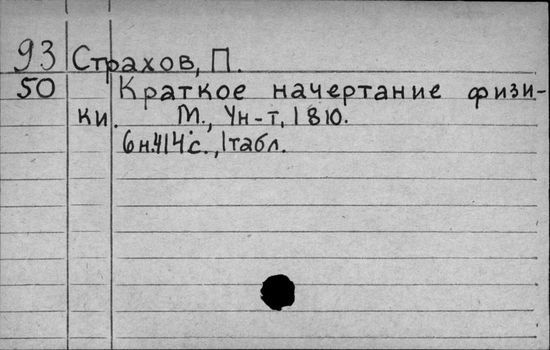 93 Страхов, П.
50 Краткое начертание физи-
ки. М., Ун-т, 1810.
6н.414с., 1табл.